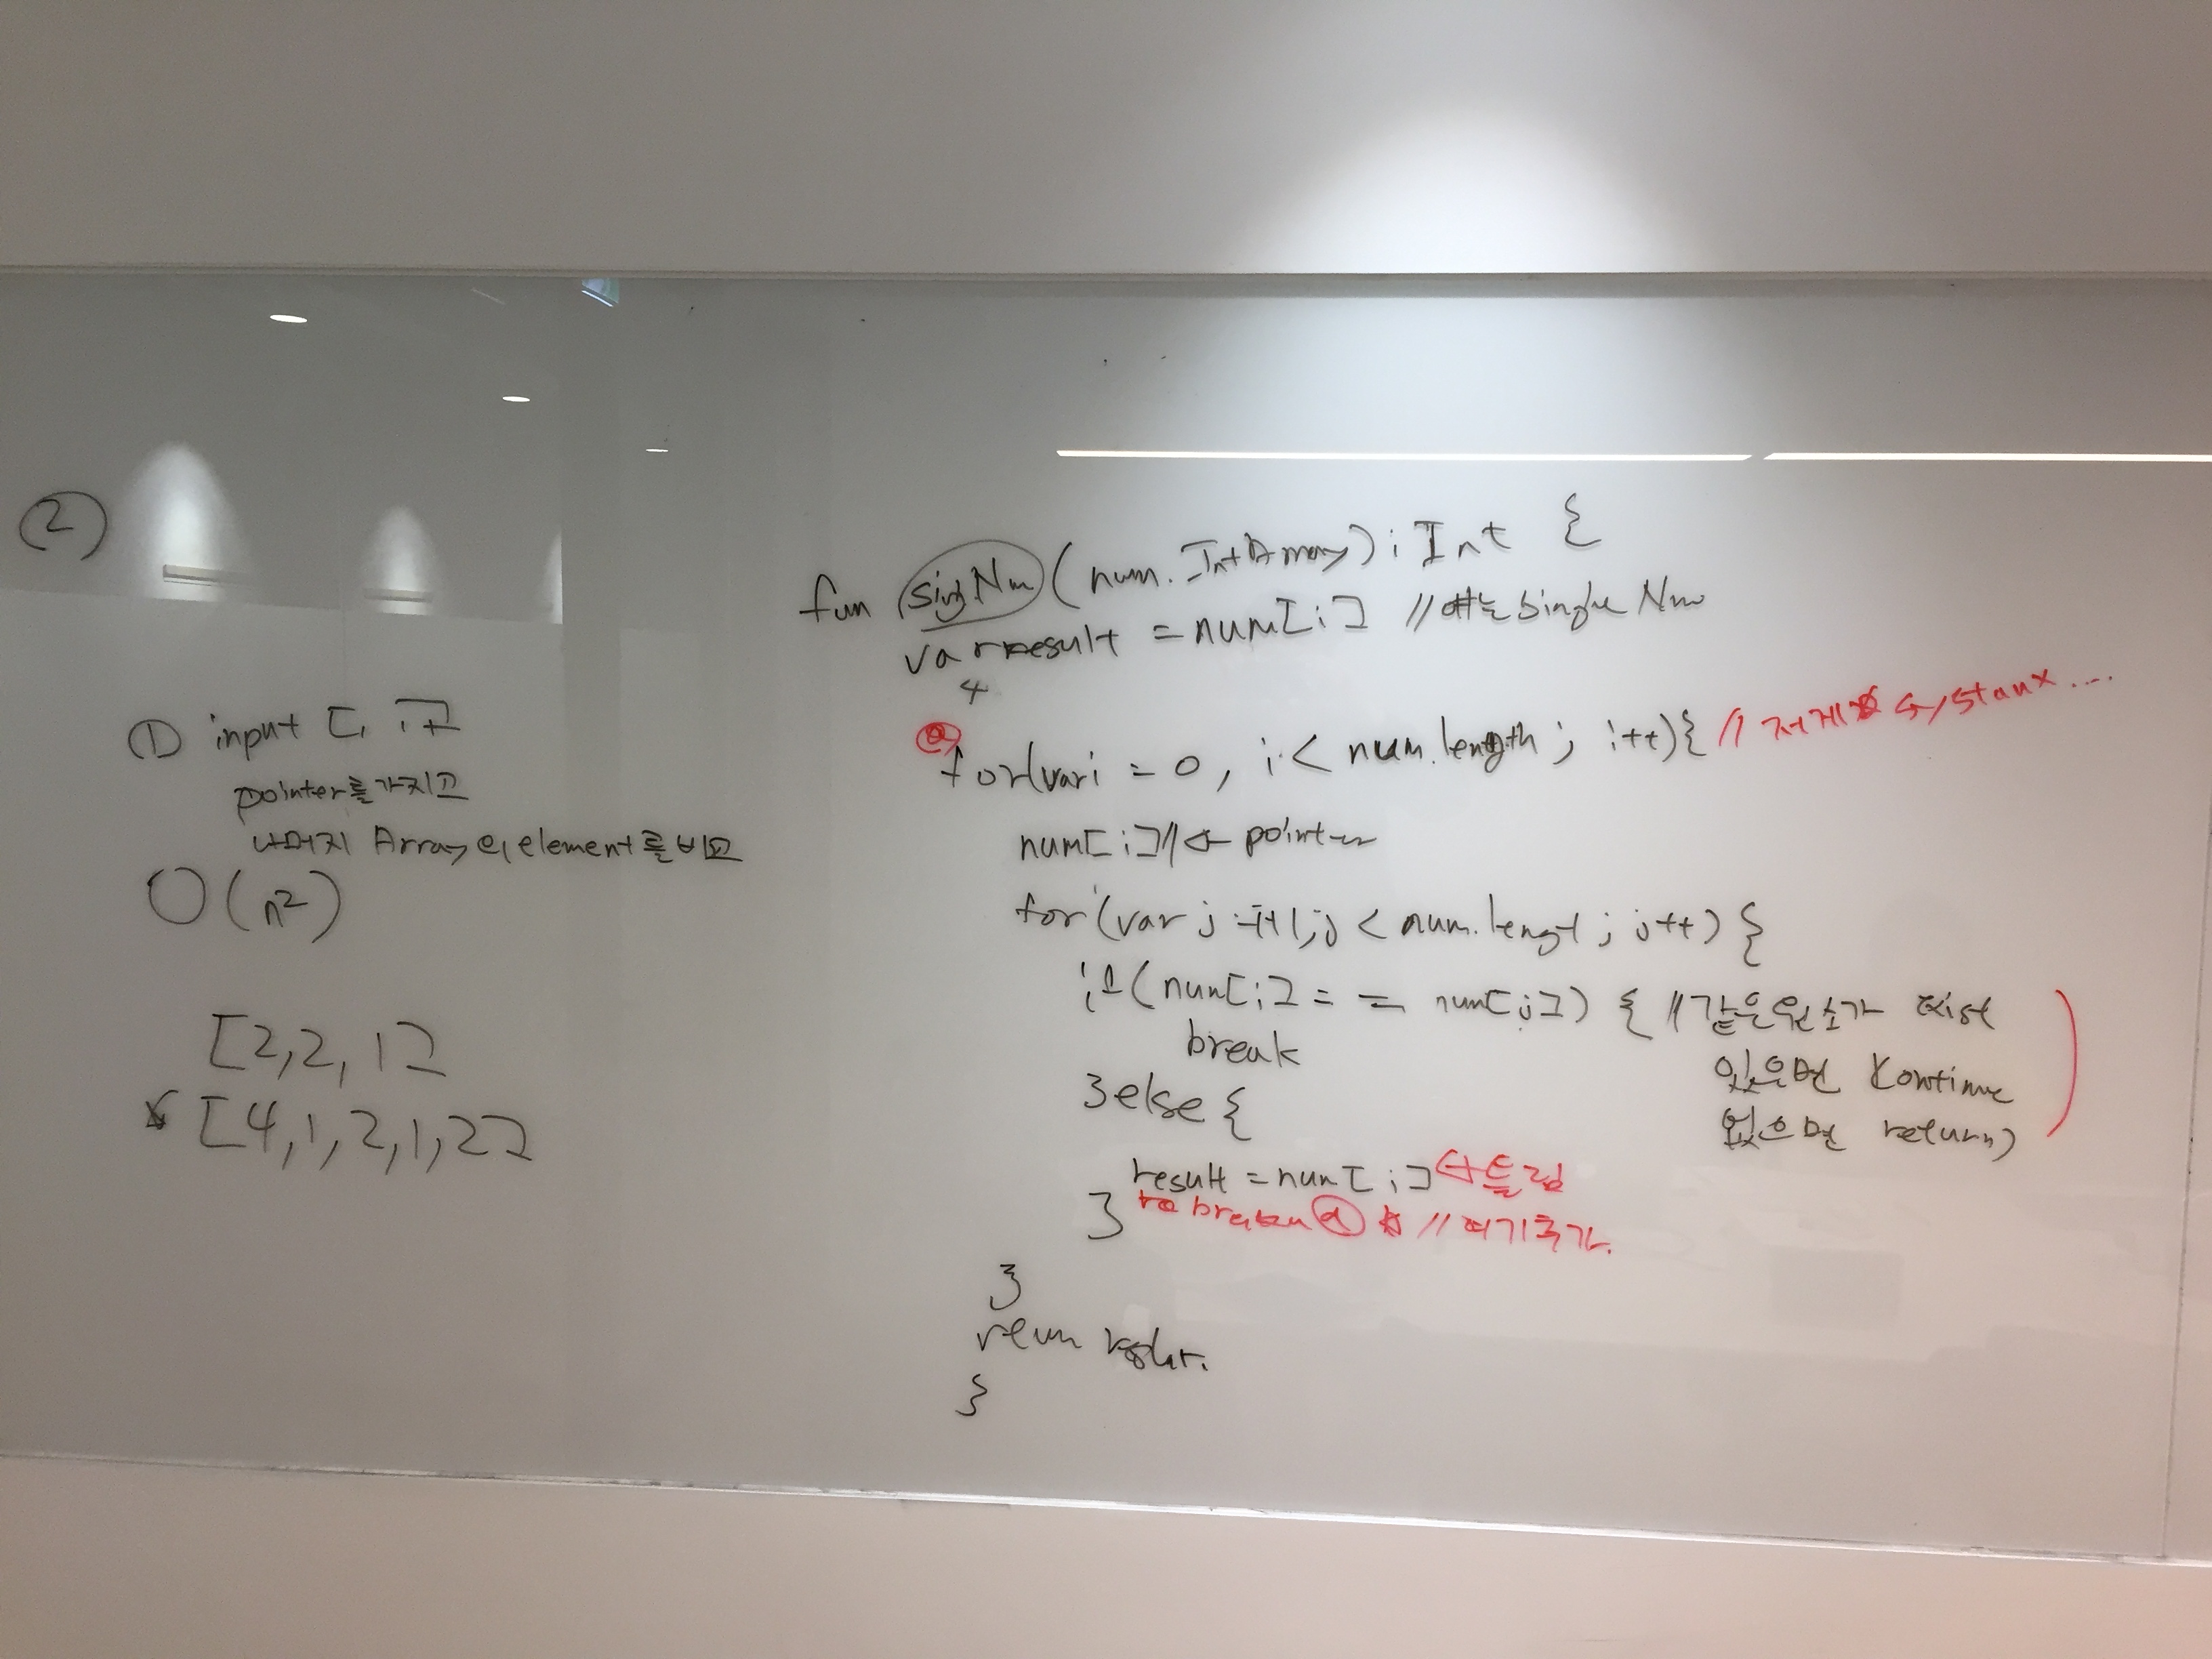 ②
① input [, ;]
pointer를 가지고
나머지 Array의 element를 비교
O(n²)
[2,2,1]
[4,1,2,1,2]
fun singNm (num. IntArray) : Int {
var result = num[i] // single Nm
4
@
for(var i = 0, i < num.length; i++){ // systaux ....
num[i] // ← pointer
for(var j =i+1;j < num.lengt; j++) {
if(num[i] == num[j]) { // 같은 원소가 exist
break 있으면 Kontinue
}else { 없으면 return)
result = num[i] ← 틀림
} @ // 여기 추가.
}
reun
}